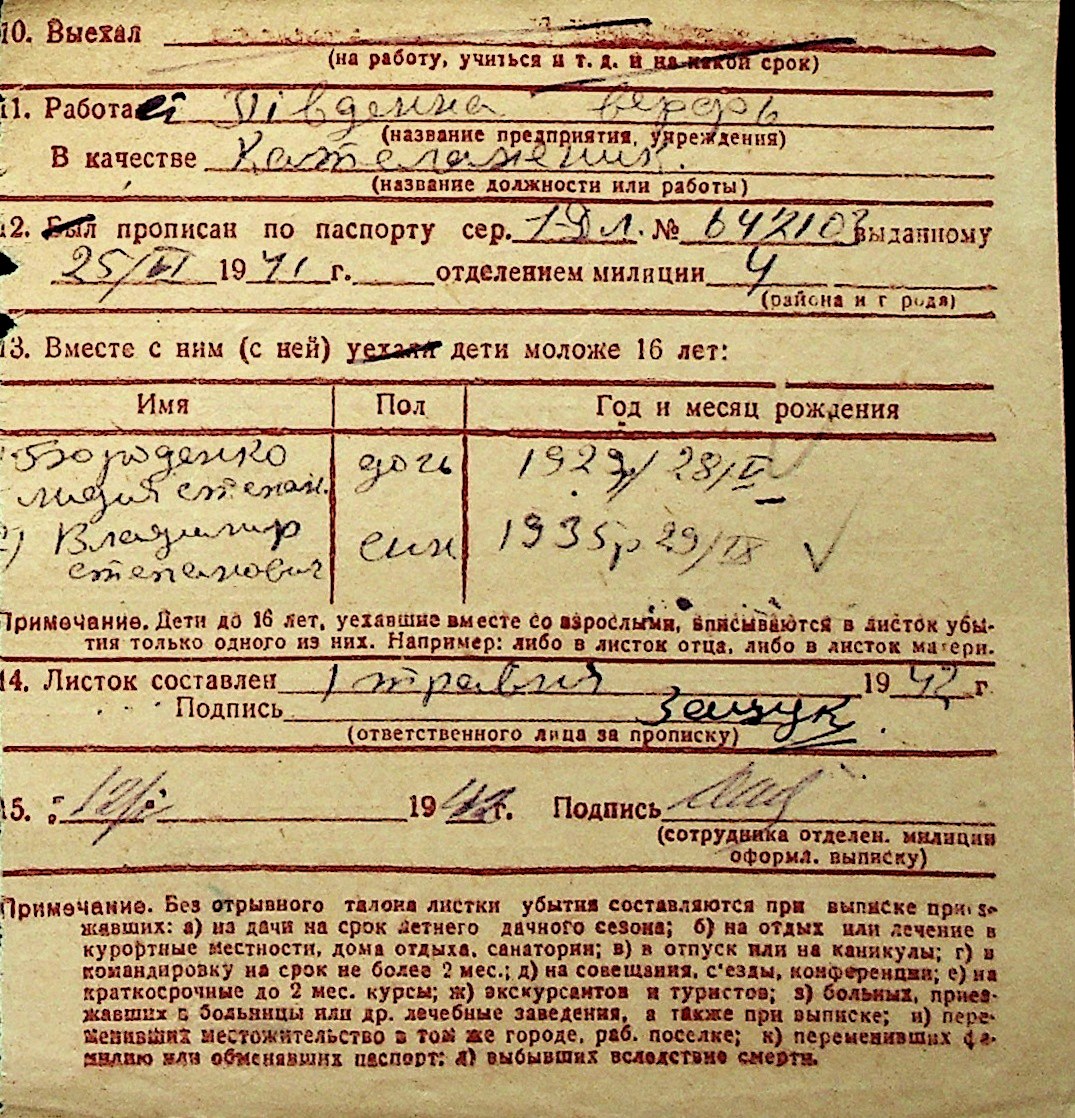 10. Выехал
(на работу, учиться и т. д. и на какой срок)
11. Работает Південна верфь
(название предприятия, учреждения)
В качестве
(название должности или работы)
12. Был прописан по паспорту сер. 1-Дл. № 642103 выданному
25/VI 1941 г. отделением милиции 4
(района и г рода)
13. Вместе с ним (с ней) уехали дети моложе 16 лет:
Имя Пол Год и месяц рождения
Бороденко дочь 1929р 28/V
Лидия степан.
2) Владимир син 1935р 29/IX
степанович
Примечание. Дети до 16 лет, уехавшие вместе со взрослыми, вписываются в листок убы-
тия только одного из них. Например: либо в листок отца, либо в листок матери.
14. Листок составлен 1 травня 1942 г
Подпись
(ответственного лица за прописку)
15. 1942 г. Подпись
(сотрудника отделен. милиции
оформл. выписку)
Примечание. Без отрывного талона листки убытия составляются при выписке приез-
жавших: а) из дачи на срок летнего дачного сезона; б) на отдых или лечение в
курортные местности, дома отдыха, санатории; в) в отпуск или на каникулы; г) в
командировку на срок не более 2 мес.; д) на совещания, с'езды, конференции; е) на
краткосрочные до 2 мес. курсы; ж) экскурсантов и туристов; з) больных, приез-
жавших в больницы или др. лечебные заведения, а также при выписке; и) пере-
менивших местожительство в том же городе, раб. поселке; к) переменивших фа-
милию или обменавших паспорт; л) выбывших вследствие смерти.